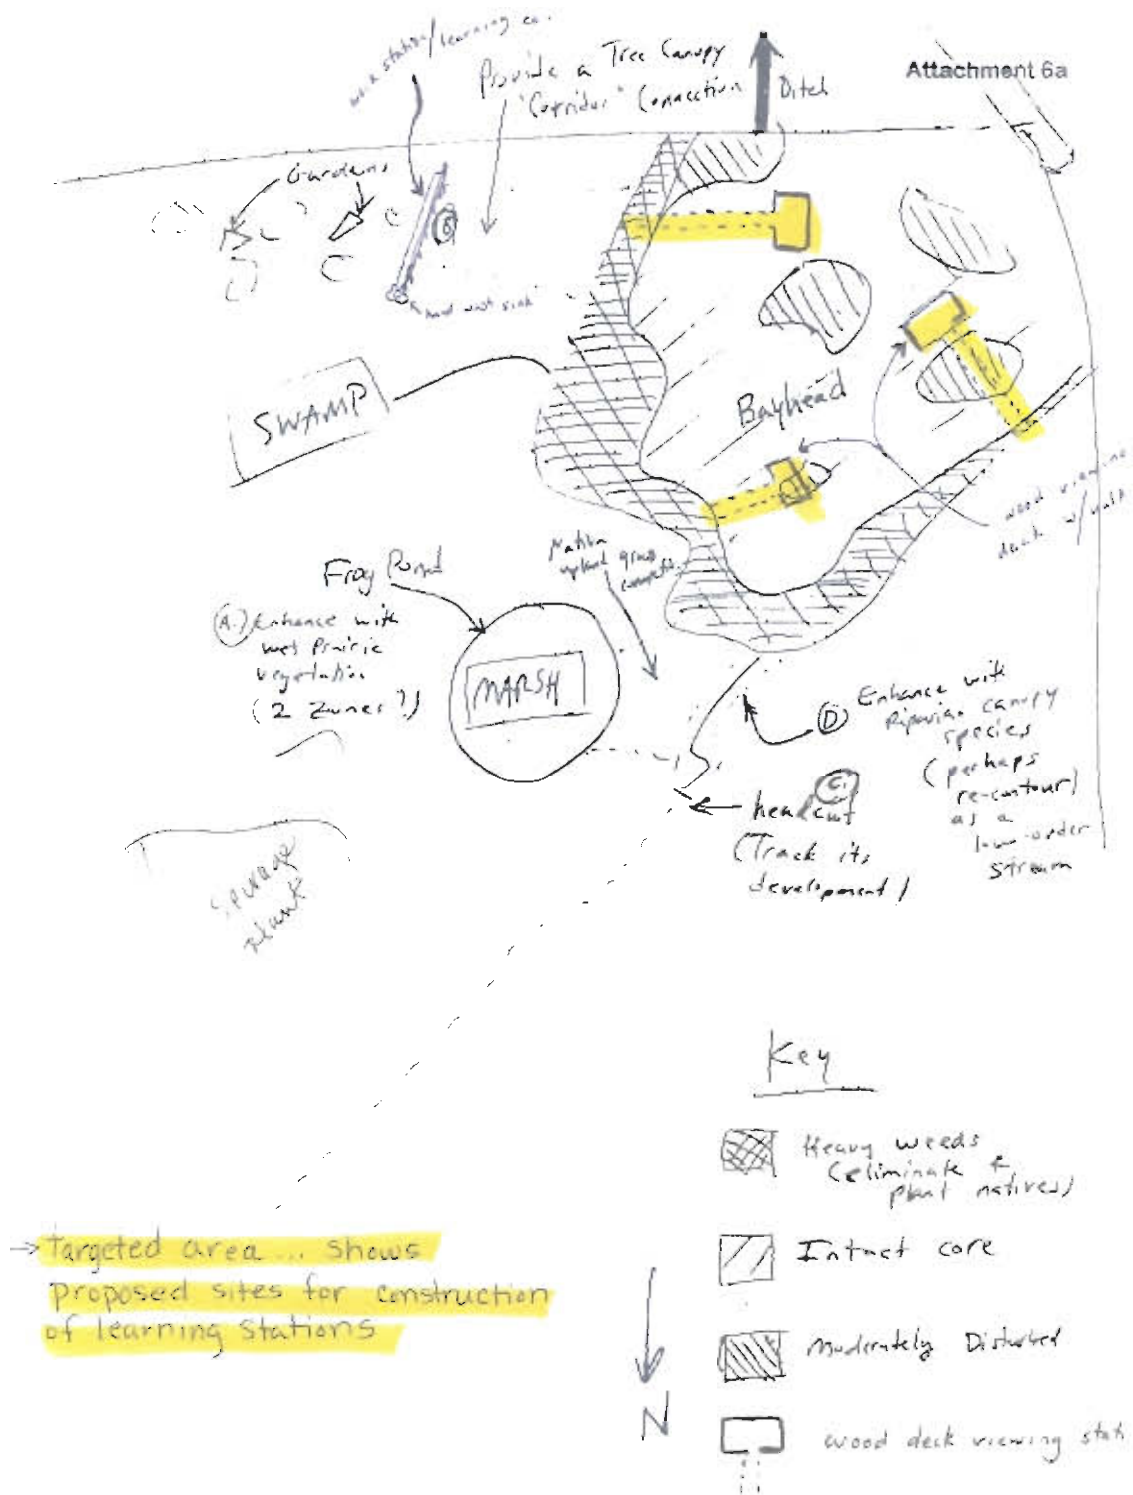 Attachment 6a
station/learning
Provide a Tree Canopy
"Corridor" Connection
Ditch
Gardens
B
hand wash sink
SWAMP
Bayhead
wood viewing
deck w/
Native
upland grass
Frog Pond
A. Enhance with
wet Prairie
vegetation
(2 Zones?)
MARSH
D Enhance with
Riparian canopy
species
(perhaps
re-contour)
as a
low-order
stream
C.
headcut
(Track its
development)
Sewage
plant
Key
Heavy weeds
(eliminate &
plant natives)
Intact core
Moderately Disturbed
wood deck viewing stati
→ Targeted area ... shows
proposed sites for construction
of learning stations
N